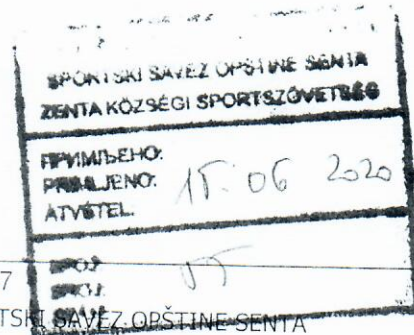 SPORTSKI SAVEZ OPŠTINE SENTA
ZENTA KÖZSÉGI SPORTSZÖVETSÉG
ПРИМЉЕНО:
PRIMLJENO: 15. 06 2020
ÁTVÉTEL
7
БРОЈ:
BROJ:
TSKI SAVEZ OPŠTINE SENTA